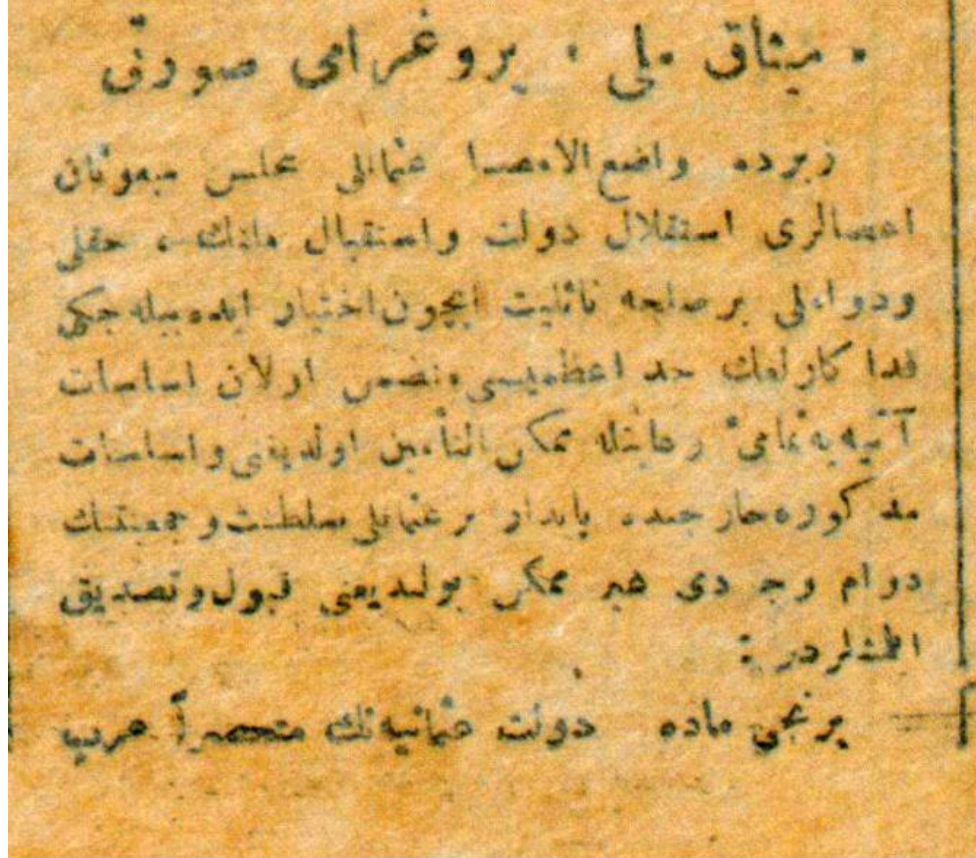 « میثاق ملی » پروغرامی صورتی
زیرده واضع الامضا عثمانلی مجلس مبعوثان
اعضالری استقلال دولت واستقبال ملتك ، حقلی
ودواملی بر صلحه نائلیت ایچون اختیار ایده بیله جكی
فدا كارلغك حد اعظمیسی متضمن اولان اساسات
آتیه یه تمامیٔ رعایتله ممكن التأمین اولدیغنی واساسات
مذكوره خارجنده پایدار بر عثمانلی سلطنت وجمعیتنك
دوام وجودی غیر ممكن بولندیغنی قبول وتصدیق
ایلمشلردر :
برنجی ماده دولت عثمانیه نك منحصراً عرب